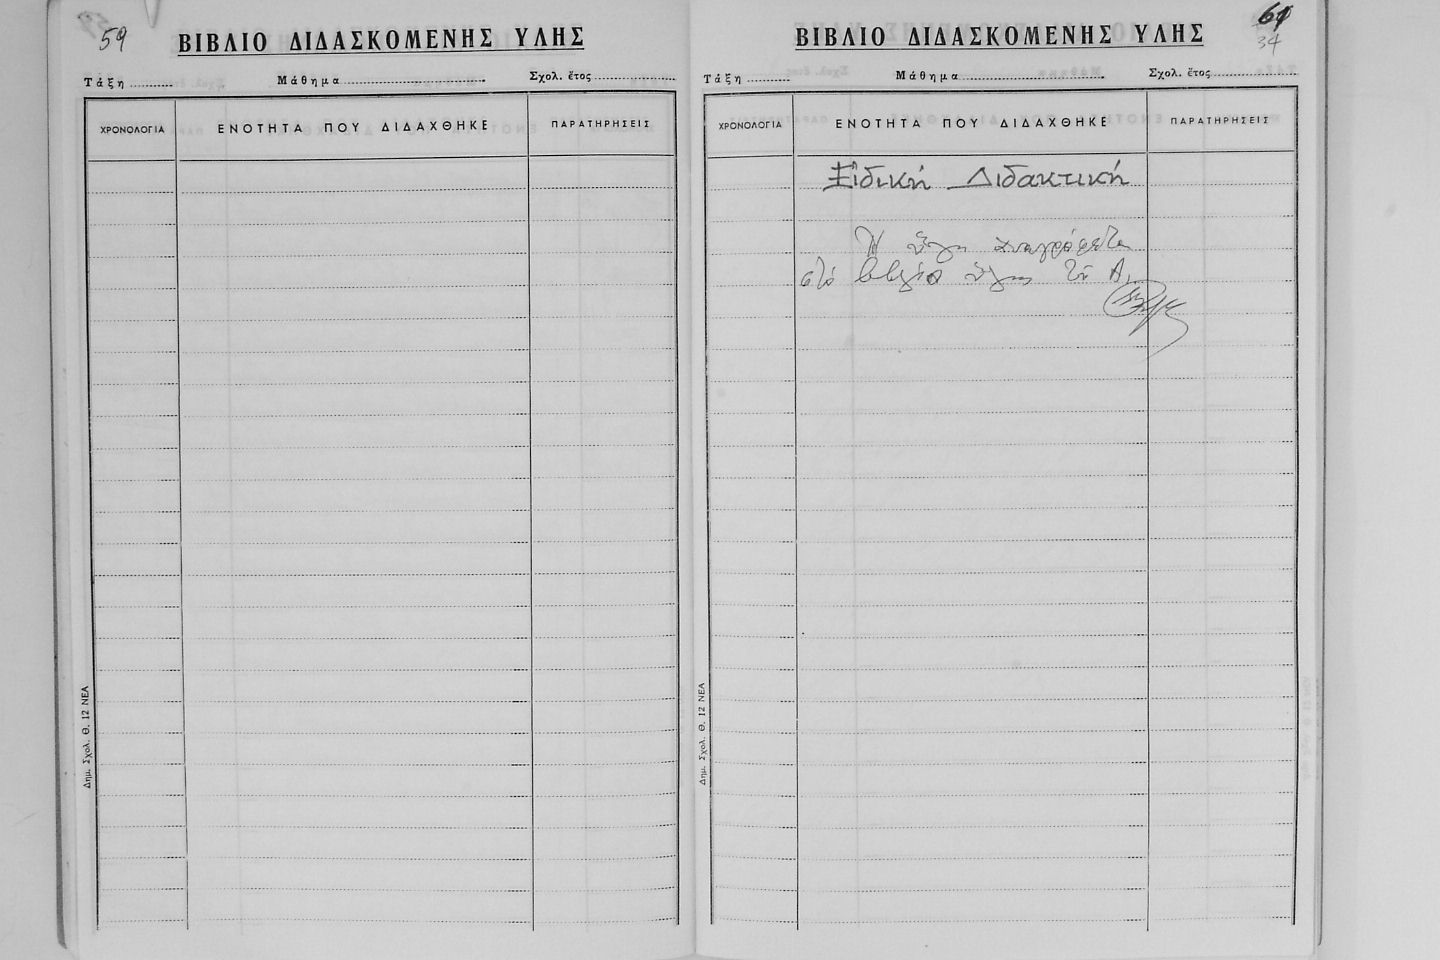 59
ΒΙΒΛΙΟ ΔΙΔΑΣΚΟΜΕΝΗΣ ΥΛΗΣ
Τάξη ........... Μάθημα ........................ Σχολ. ἔτος ..............
ΧΡΟΝΟΛΟΓΙΑ ΕΝΟΤΗΤΑ ΠΟΥ ΔΙΔΑΧΘΗΚΕ ΠΑΡΑΤΗΡΗΣΕΙΣ
Δημ. Σχολ. Θ. 12 ΝΕΑ
61
34
ΒΙΒΛΙΟ ΔΙΔΑΣΚΟΜΕΝΗΣ ΥΛΗΣ
Τάξη ........... Μάθημα ........................ Σχολ. ἔτος ..............
ΧΡΟΝΟΛΟΓΙΑ ΕΝΟΤΗΤΑ ΠΟΥ ΔΙΔΑΧΘΗΚΕ ΠΑΡΑΤΗΡΗΣΕΙΣ
Εἰδική Διδακτική
Ἡ ὕλη ἀναγράφεται
στό βιβλίο ὕλης τοῦ Α.
Δημ. Σχολ. Θ. 12 ΝΕΑ